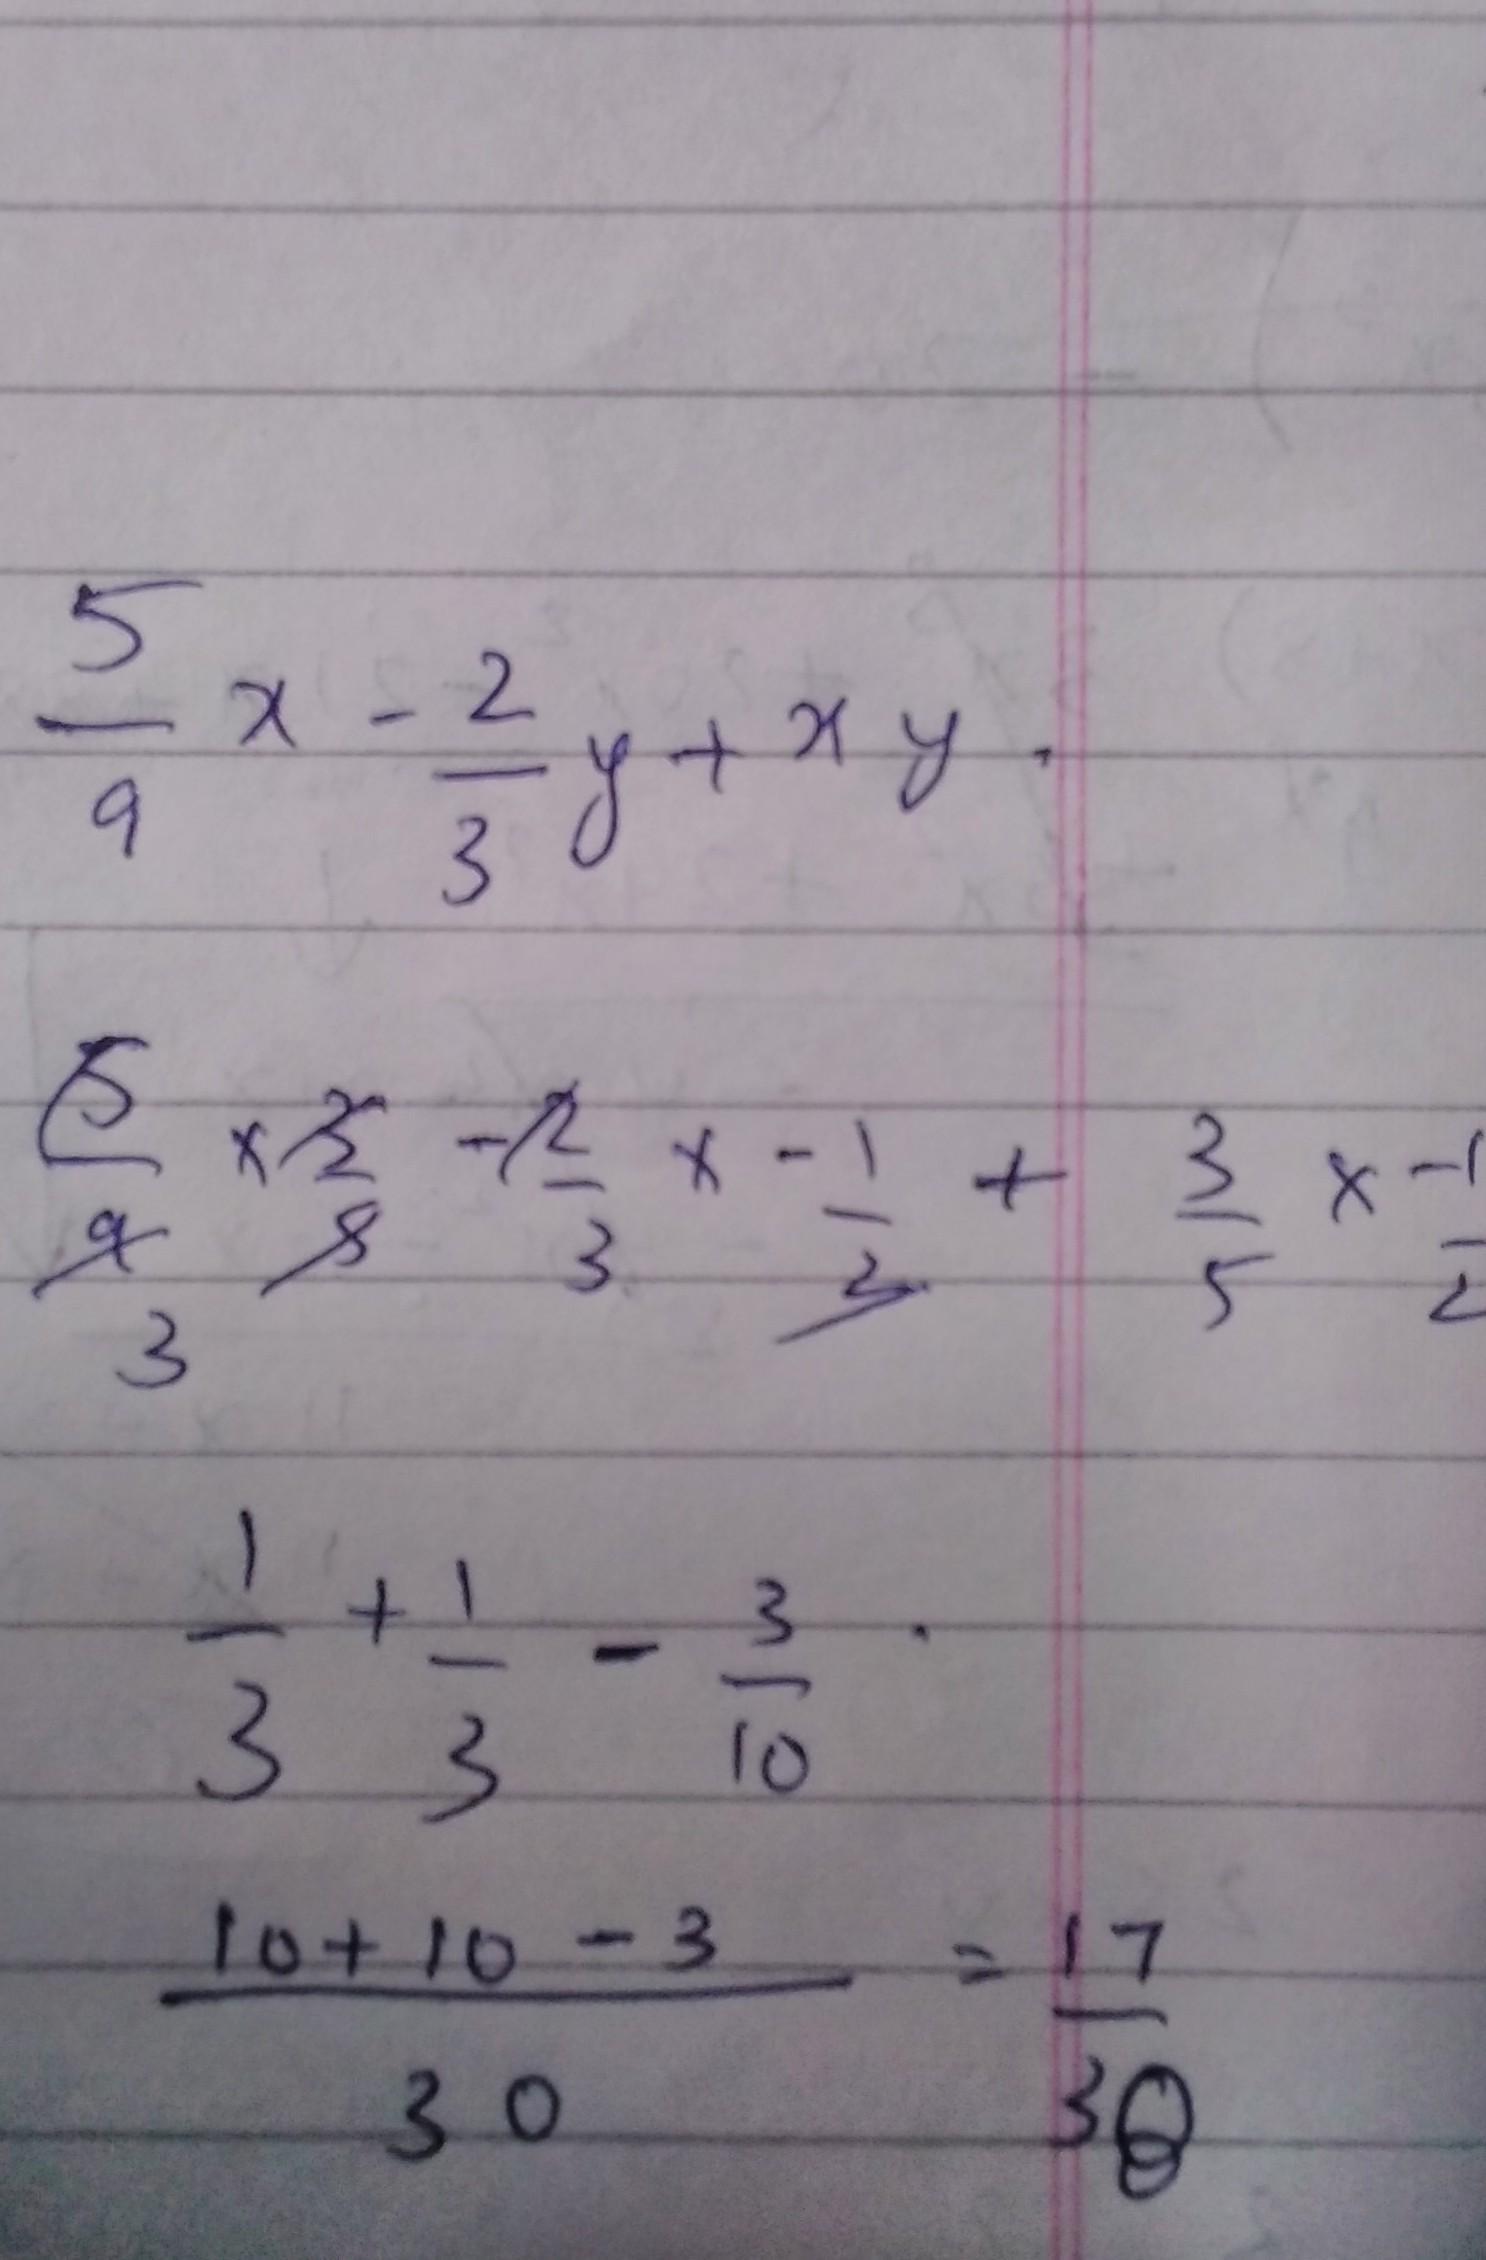 5/9 x - 2/3 y + x y .
5/9 × 3/5 - 2/3 × -1/2 + 3/5 × -1/2
3
1/3 + 1/3 - 3/10 .
10 + 10 - 3 / 30 = 17/30